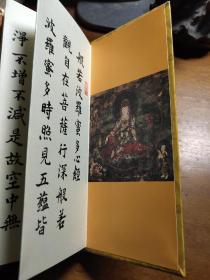 般若波羅蜜多心經
觀自在菩薩行深般若
波羅蜜多時照見五蘊皆
淨不增不減是故空中無